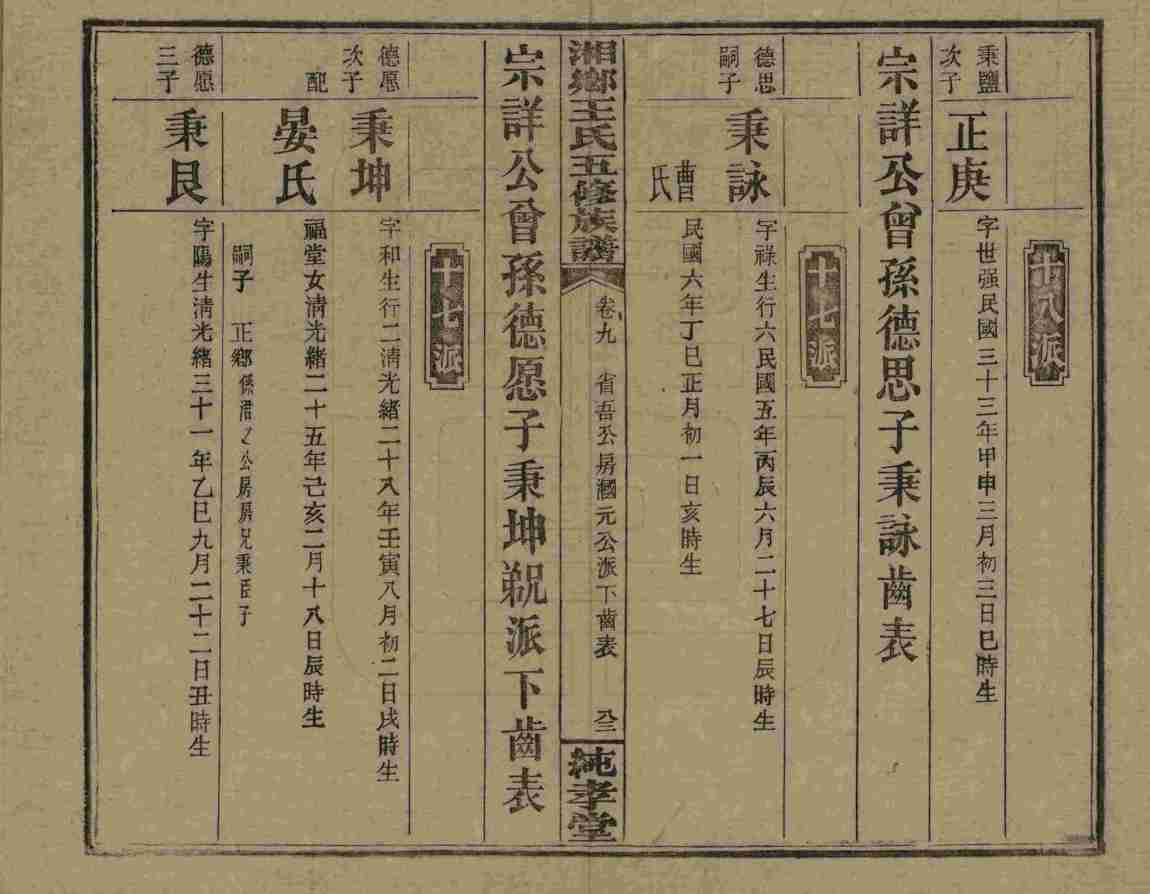 十八派
秉鹽次子
正庚
字世强民國三十三年甲申三月初三日巳時生
宗詳公曾孫德思子秉詠齒表
十七派
德思嗣子
秉詠
字祿生行六民國五年丙辰六月二十七日辰時生
曹氏
民國六年丁巳正月初一日亥時生
湘鄉王氏五修族譜
卷九
省吾公房
元公派下齒表
八三
純孝堂
宗詳公曾孫德愿子秉坤
派下齒表
十七派
德愿次子
秉坤
字和生行二清光緒二十八年壬寅八月初二日戌時生
配
晏氏
福堂女清光緒二十五年己亥二月十八日辰時生
嗣子
正鄉係
公房房兄秉臣子
德愿三子
秉艮
字陽生清光緒三十一年乙巳九月二十二日丑時生